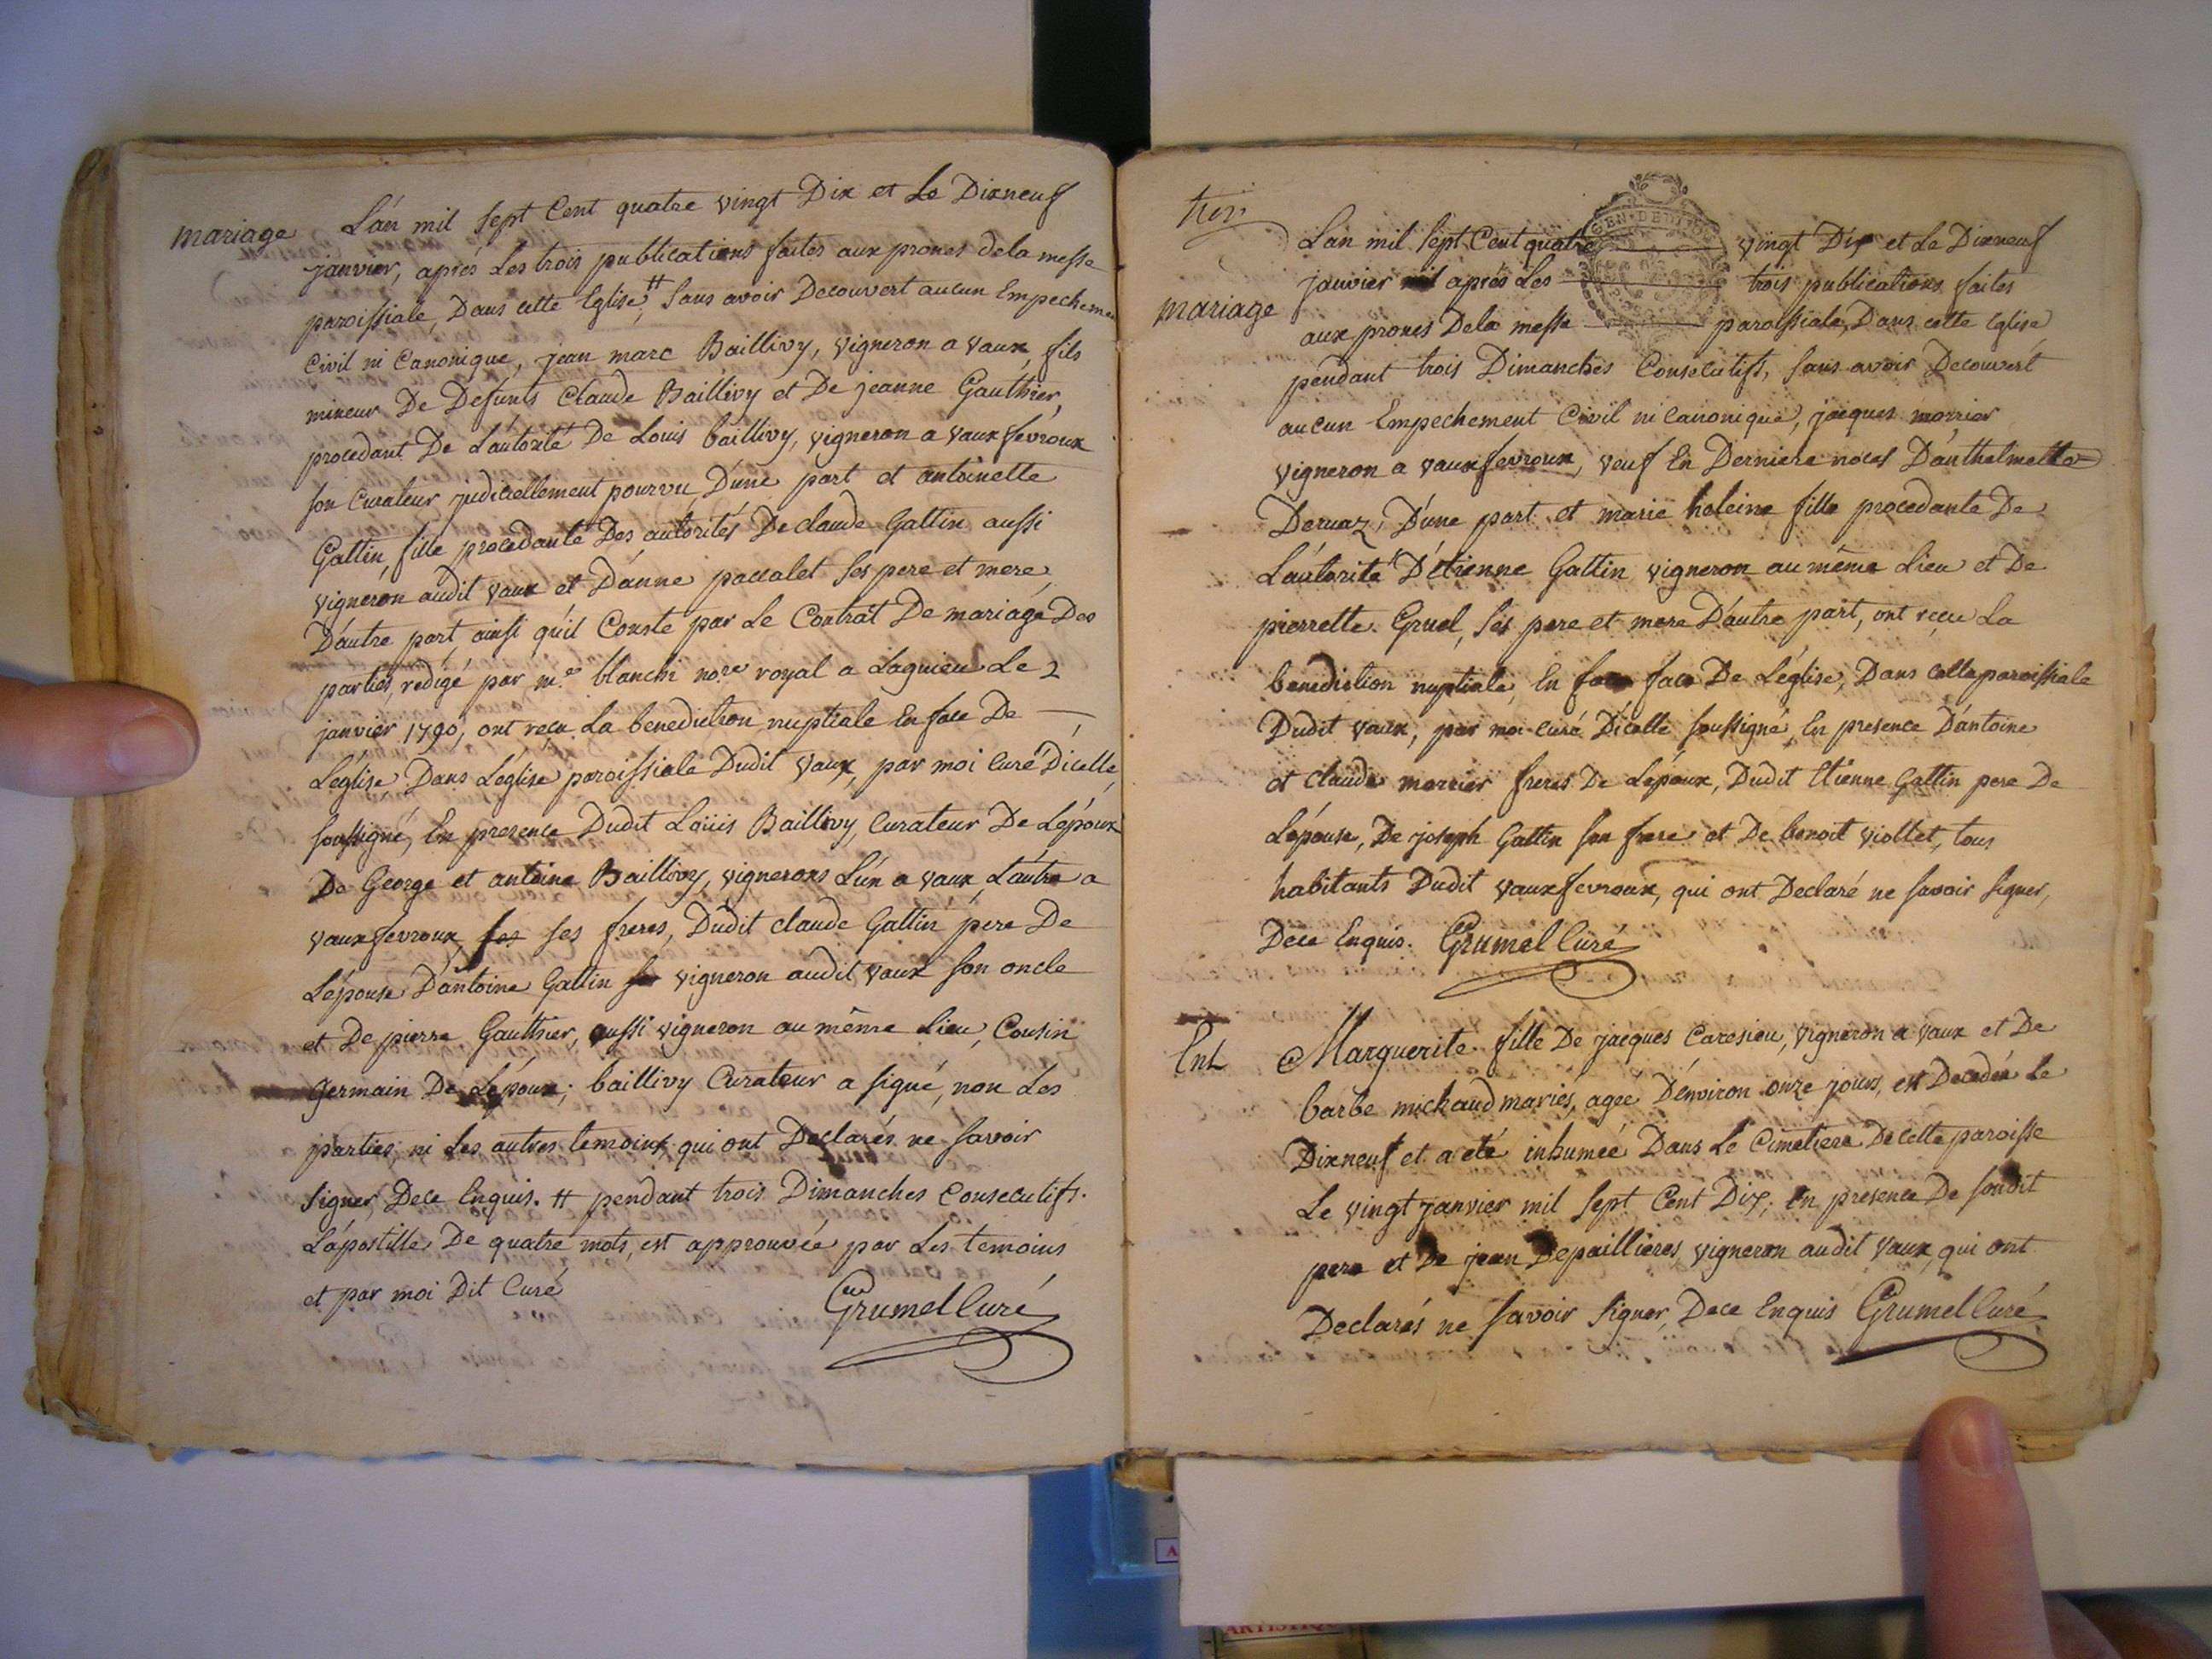 mariage
L'an mil sept Cent quatre vingt Dix et Le Dixneuf
janvier, aprés Les trois publications faites aux prones dela messe
paroissiale, Dans cette Eglise, # sans avoir Decouvert aucun Empecheme
Civil ni Canonique, jean marc Baillivy, vigneron a vaux, fils
mineur De Defunts Claude Baillivy et De jeanne Gauthier,
procedant De L'autorité De Louis baillivy, vigneron a vauxfevroux
son Curateur judiciellement pourvu D'une part et antoinette
Gattin, fille procedante Des autorités De claude Gattin aussi
vigneron audit vaux et D'anne paccalet ses pere et mere,
D'autre part, ainsi qu'il Conste par Le Contrat De mariage Des
parties, redigé par m.re blanchi no.re royal a Lagnieu Le 2
janvier 1790, ont reçu La benediction nuptiale En face De
L'église, Dans L'eglise paroissiale Dudit vaux, par moi Curé D'icelle,
soussigné, En presence Dudit Loüis Baillivy, Curateur De L'époux
De George et antoine Baillivy, vignerons L'un a vaux, L'autre a
vauxfevroux, ses ses freres, Dudit claude Gattin pere De
L'epouse D'antoine Gattin vigneron audit vaux son oncle
et De pierre Gauthier, aussi vigneron au même Lieu, Cousin
germain De L'époux; baillivy Curateur a signé, non Les
parties, ni Les autres temoins qui ont Declarés ne savoir
signer, Dece Enquis. # pendant trois Dimanches Consecutifs.
L'apostille De quatre mots, est approuvée par Les temoins
et par moi Dit Curé
Grumel Curé
trois
L'an mil sept Cent quatre vingt Dix et Le Dixneuf
GEN DE
janvier aprés Les trois publications faites
mariage
aux prones Dela messe paroissiale, Dans cette Eglise
pendant trois Dimanches Consecutifs, sans avoir Decouvert
aucun Empechement Civil ni Canonique, jacques morrier
vigneron a vauxfevroux, veuf En Derniere noces D'anthelmette
Dervaz, D'une part et marie heleine fille procedante De
L'autorité D'étienne Gattin vigneron au même Lieu et De
pierrette Gruel, ses pere et mere D'autre part, ont reçu La
benediction nuptiale, En face face De L'église, Dans cette paroissiale
Dudit vaux, par moi curé D'icelle soussigné, En presence D'antoine
et claude morrier freres De L'epoux, Dudit Etienne Gattin pere De
L'épouse, De joseph Gattin son frere et De benoit viollet, tous
habitants Dudit vauxfevroux, qui ont Declaré ne savoir signer,
Dece Enquis. Grumel Curé
Ent
Marguerite fille De jacques Caresieu, vigneron a vaux et De
barbe michaud mariés, ageé D'environ onze jours, est Decedée Le
Dixneuf et a eté inhumée Dans Le Cimetiere De cette paroisse
Le vingt janvier mil sept Cent Dix, En presence De sondit
pere et De jean Depaillieres, vigneron audit vaux, qui ont
Declarés ne savoir signer, Dece Enquis Grumel Curé
A
ARTISTIQU